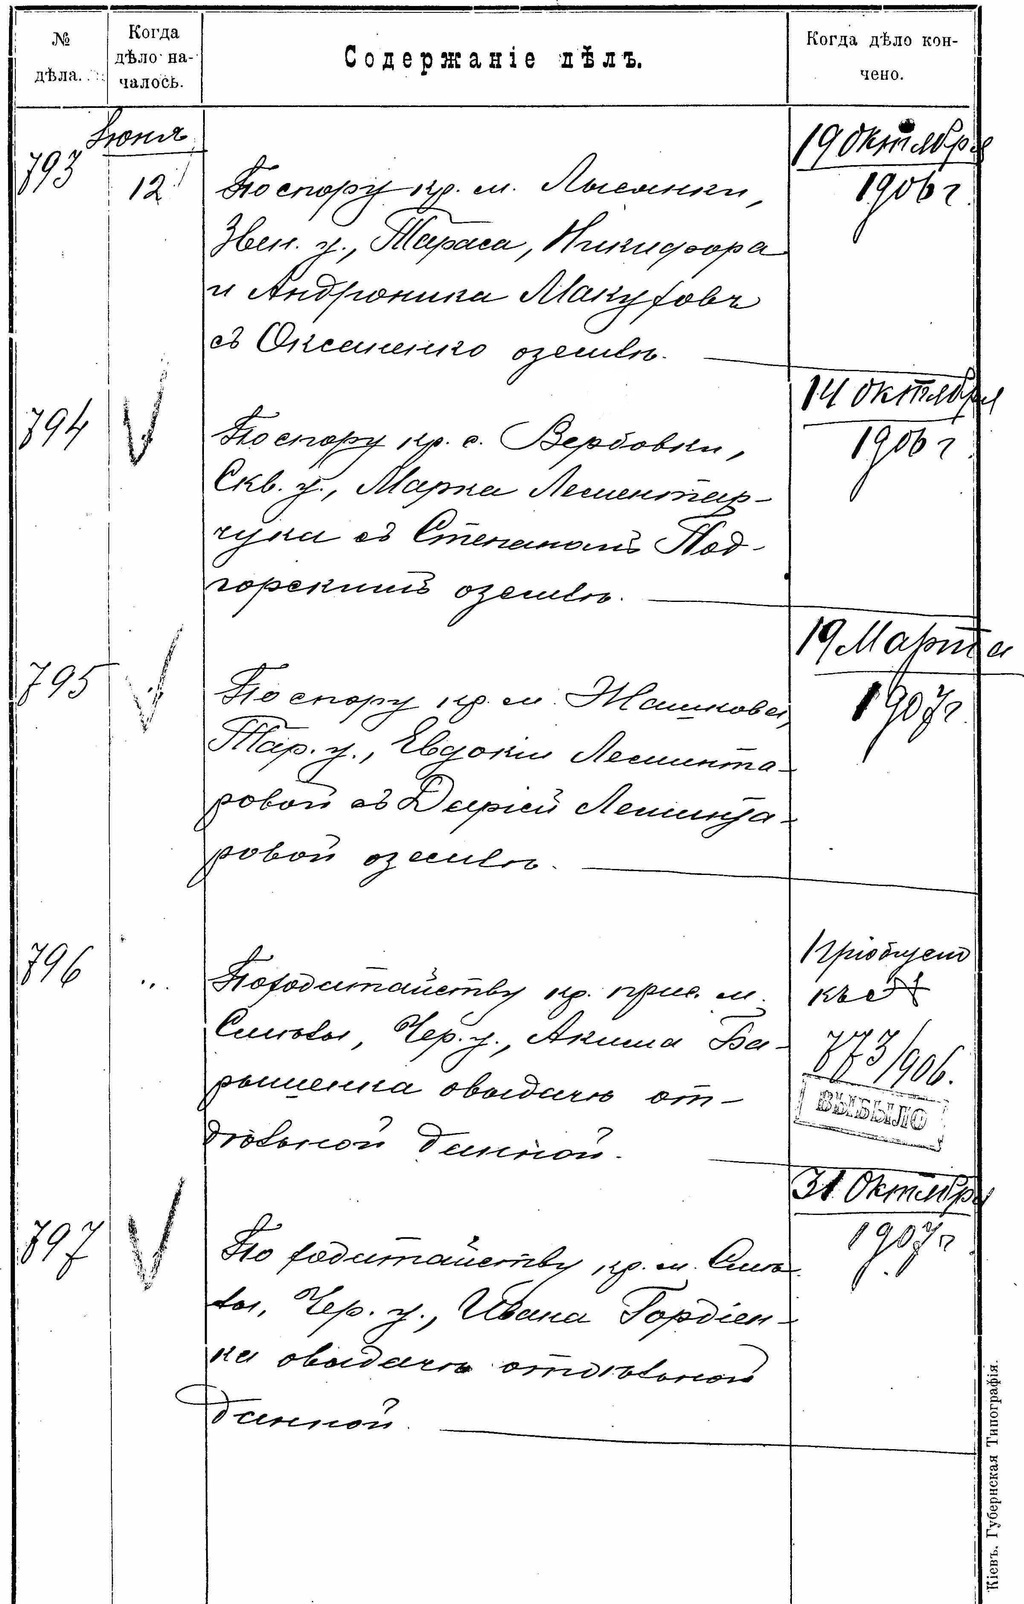 № дѣла.
Когда дѣло началось.
Содержаніе дѣлъ.
Когда дѣло кончено.
Іюня
793
12
По спору кр. м. Лысянки,
Звен. у., Тараса, Никифора
и Андроника Макуховъ
съ Оксененко о землѣ.
19 Октября
1906 г.
794
По спору кр. с. Вербовки,
Скв. у., Марка Лементар-
чука съ Степаномъ Под-
горскимъ о землѣ.
14 Октября
1906 г.
795
По спору кр. м. Жашкова,
Тар. у., Евдокіи Лемента-
ровой съ Даріей Лемента-
ровой о землѣ.
19 Марта
1907 г.
796
По ходатайству кр. м.
Смѣлы, Чер. у., Акима Ба-
рышенка о выдачѣ от-
дѣльной данной.
къ №
773/906.
ВЫБЫЛО
797
По ходатайству кр. м. Смѣ-
лы, Чер. у., Ивана Гордіен-
ка о выдачѣ отдѣльной
данной.
31 Октября
1907 г.
Кіевъ. Губернская Типографія.